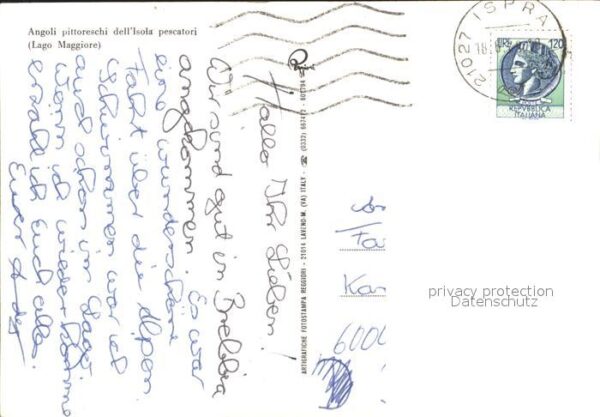 Angoli pittoreschi dell'Isola pescatori
(Lago Maggiore)
Hallo Ihr Lieben!
Wir sind gut in Brebbia
angekommen. Es war
eine wunderschöne
Fahrt über die Alpen.
Schwimmen war ich
auch schon im Lago.
Wenn ich wieder komme
erzähl ich Euch alles.
Euer
ARTIGRAFICHE FOTOSTAMPA REGGIORI - 21014 LAVENO-M. (VA) ITALY - ☎ (0332)
21027 ISPRA
18
LIRE 120
REPUBBLICA
ITALIANA
An
Fa
Kar
6000
privacy protection
Datenschutz